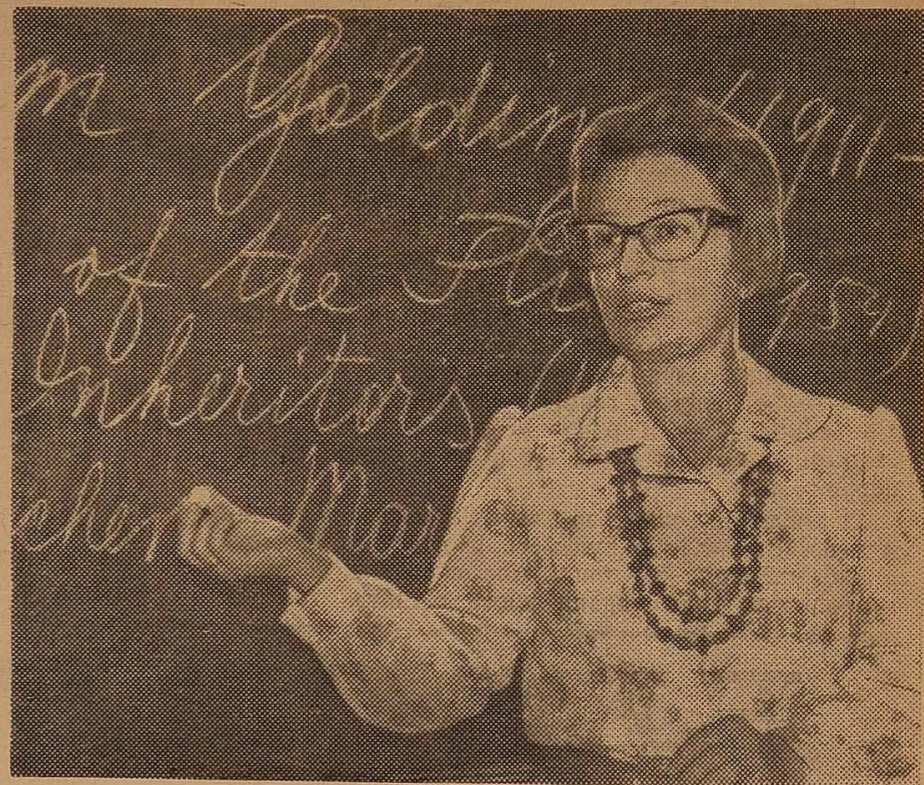 m Golding 1911-
of the Fl 954,
Inheritors (
cher Mar